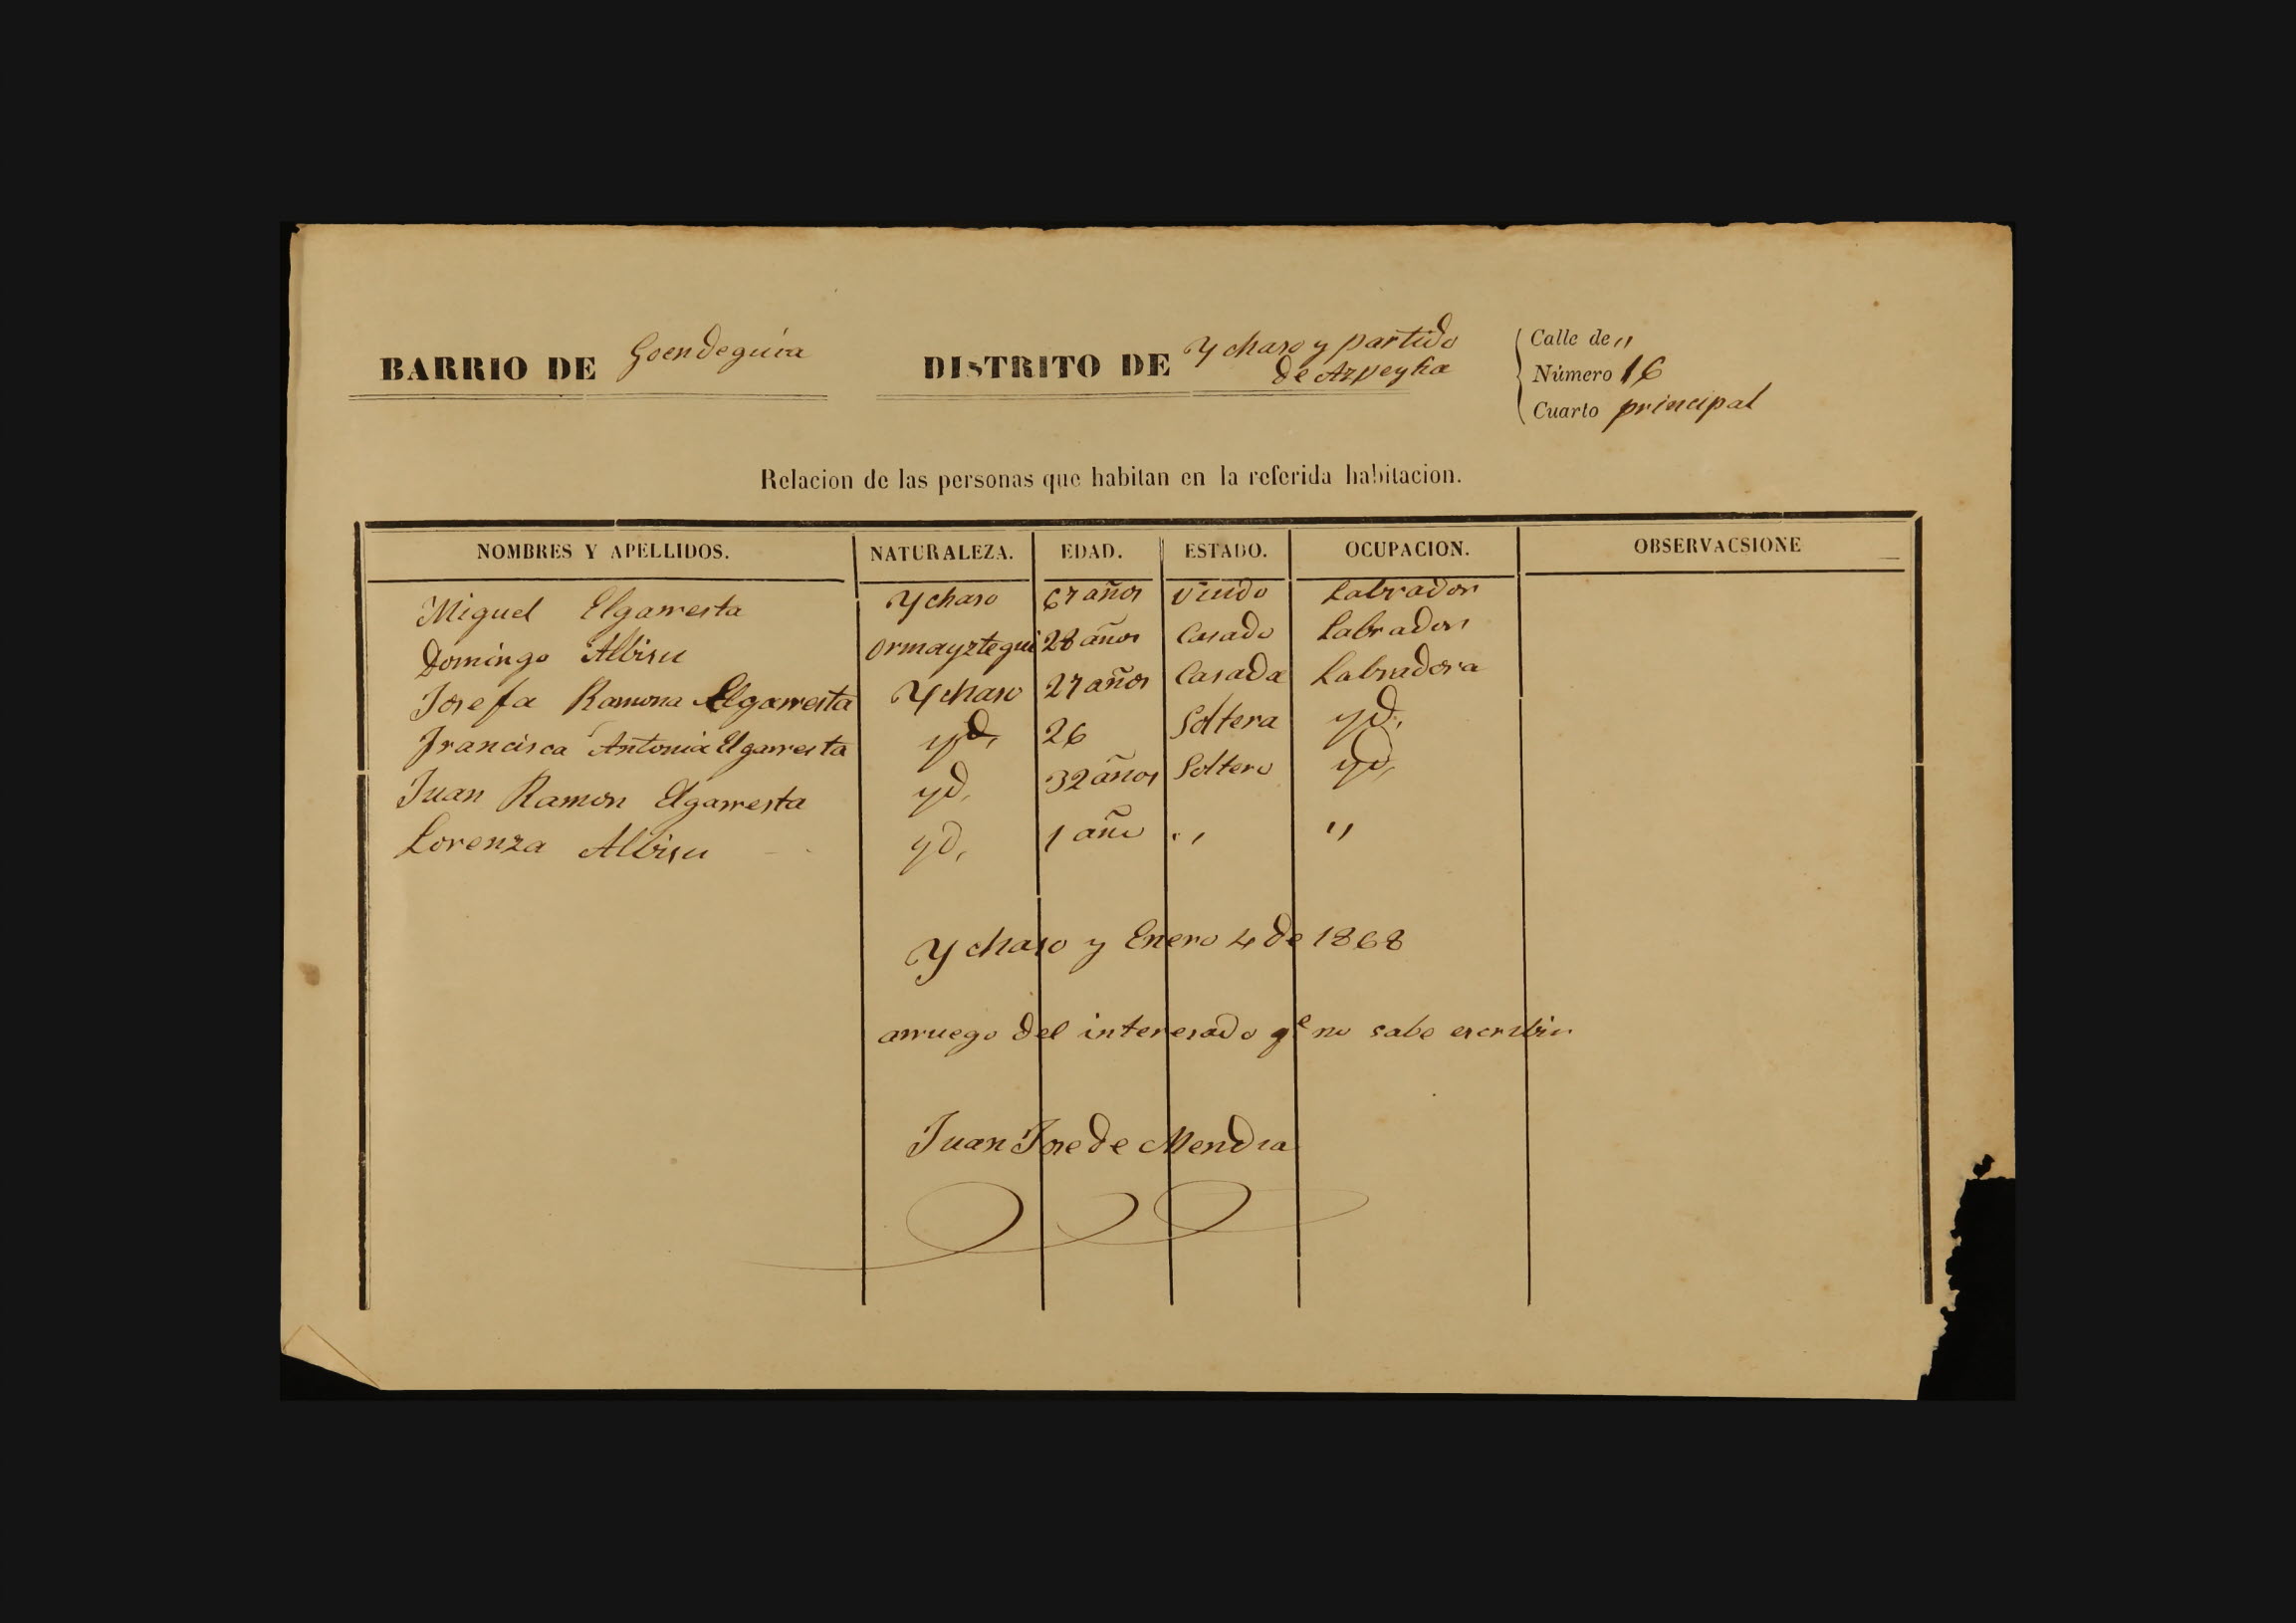 BARRIO DE Goendeguia DISTRITO DE Ychaso y partido
de Azpeytia
Calle de "
Número 16
Cuarto principal
Relacion de las personas que habitan en la referida habitacion.
NOMBRES Y APELLIDOS. NATURALEZA. EDAD. ESTADO. OCUPACION. OBSERVACSIONE
Miguel Elgarresta Ychaso 67 años Viudo Labrador
Domingo Albisu Ormayztegui 28 años Casado Labrador
Josefa Ramona Elgarresta Ychaso 27 años Casada Labradora
Francisca Antonia Elgarresta yd. 26 Soltera yd.
Juan Ramon Elgarresta yd. 32 años Soltero yd.
Lorenza Albisu yd. 1 año " "
Ychaso y Enero 4 de 1868
arruego del interesado qe no sabe escribir
Juan Jose de Mendia